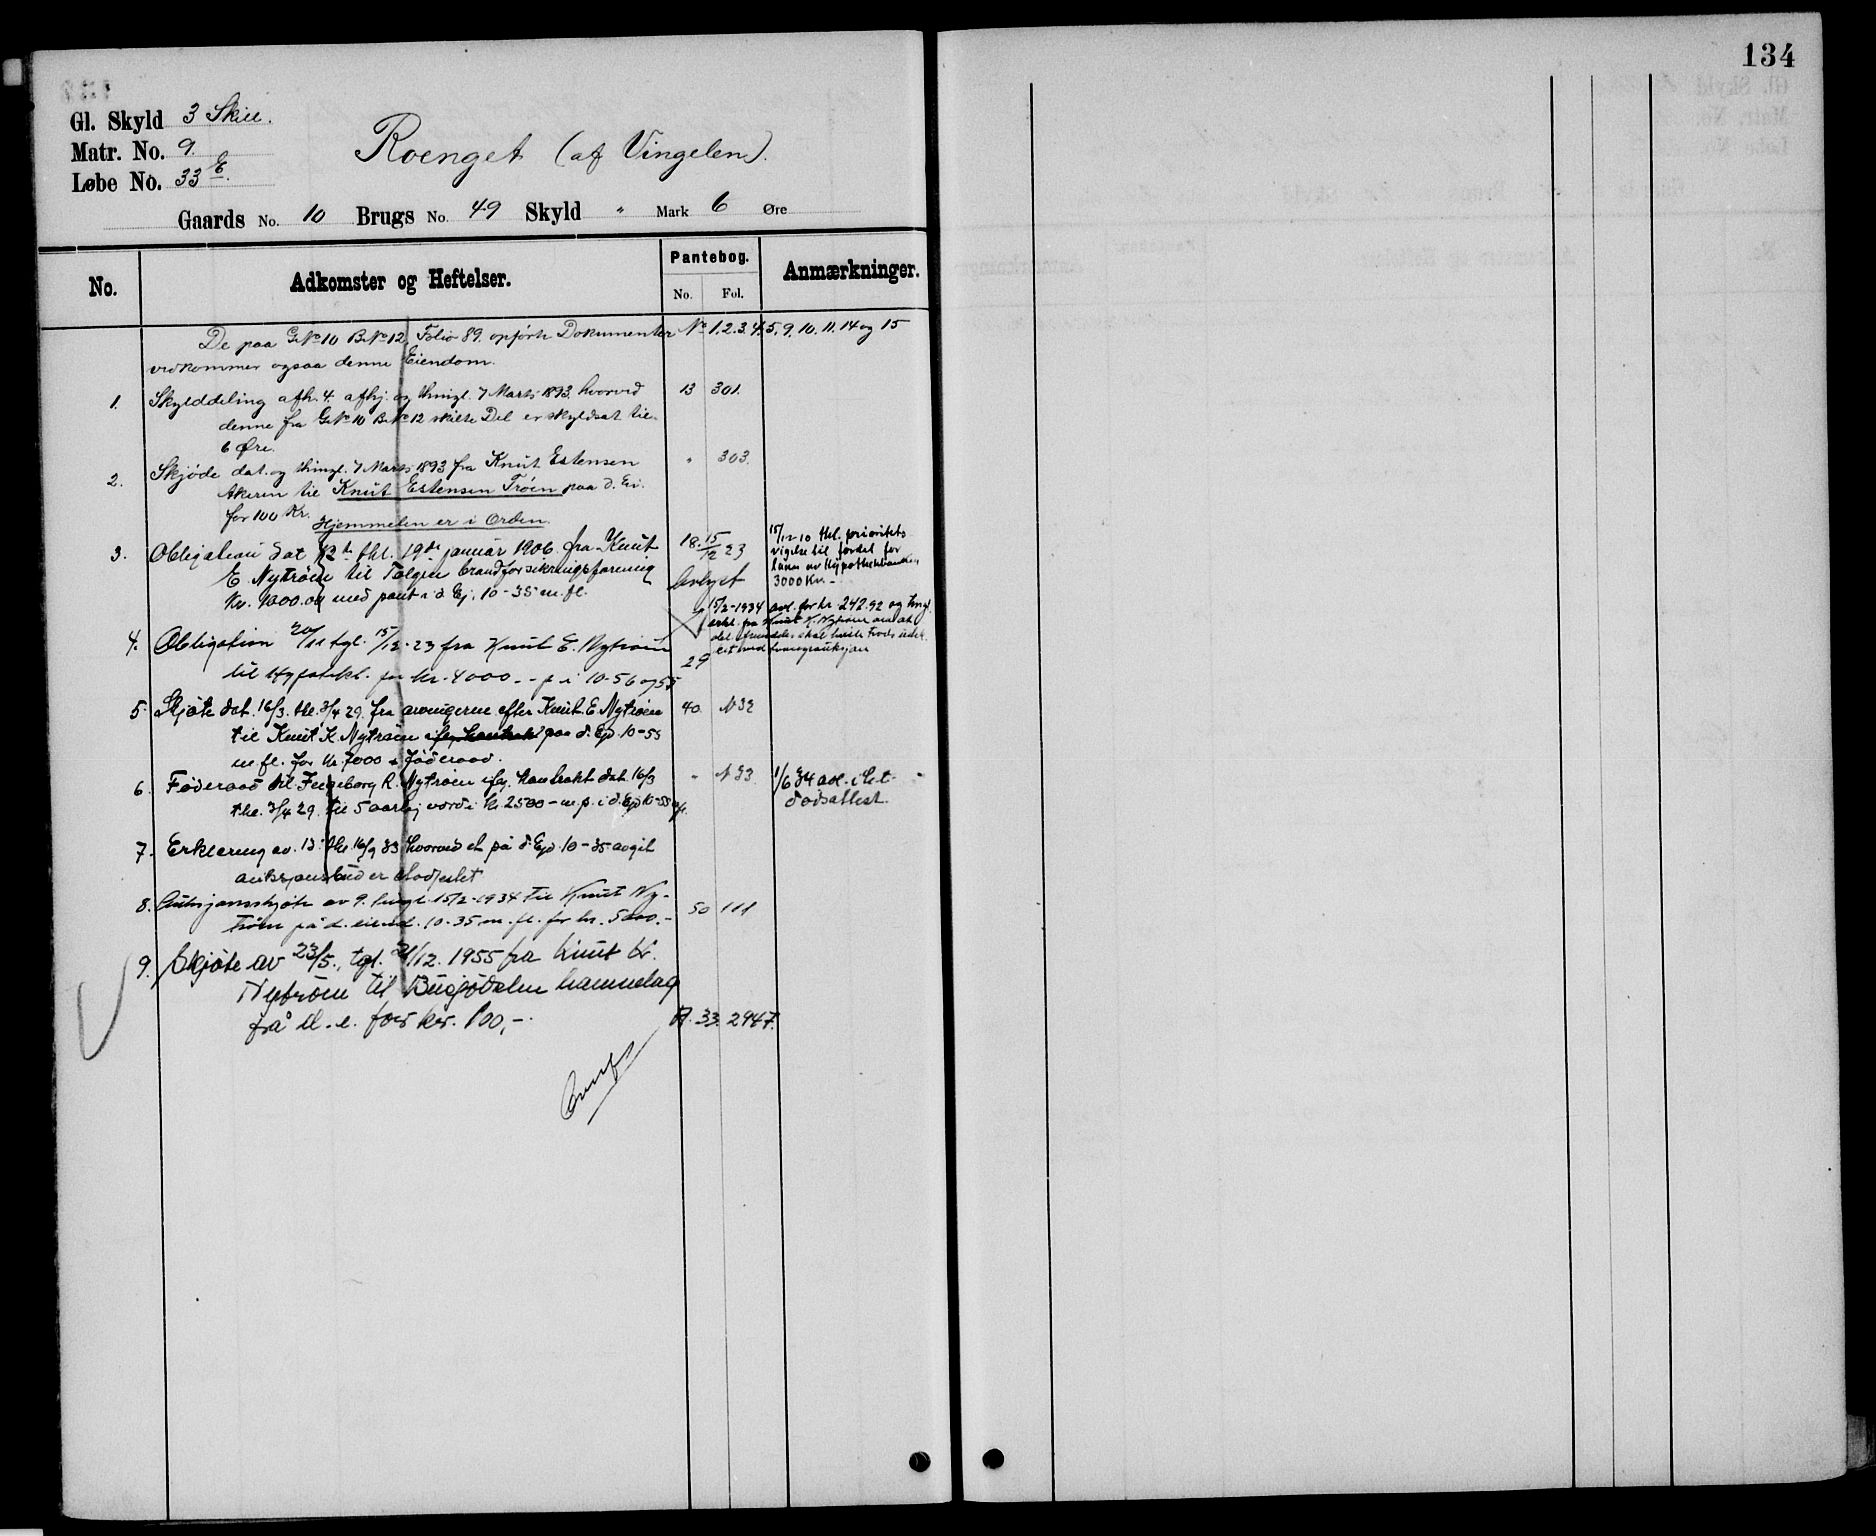 134
Gl. Skyld 3 Skill.
Matr. No. 9
Løbe No. 33 E.
Roenget (af Vingelen).
Gaards No. 10 Brugs No. 49 Skyld " Mark 6 Øre
No. Adkomster og Heftelser. Pantebog. No. Fol. Anmærkninger.
De paa GNo 10 BNo 12, Folio 89. opførte Dokumenter No 1.2.3.4.5.9.10.11.14 og 15
vedkommer ogsaa denne Eiendom.
1. Skylddeling afh. 4. afhj. og thingl. 7 Marts 1893, hvorved 13 301.
denne fra GNo 10 BNo 12 skilte Del er skyldsat til
6 Øre.
2. Skjøde dat. og thingl. 7 Marts 1893 fra Knut Estensen " 303.
Akeren til Knut Estensen Trøen paa d. Ei.
for 100 Kr. Hjemmelen er i Orden.
3. Obligation dat 12te thl. 19de januar 1906 fra Knut 18. 15/12 23
E. Nytrøen til Tolgen brandforsikringsforening Avlyst
Kr. 1000.00 med pant i d. Ej. 10-35 m. fl.
15/12 10 thl. prioritets-
vigelse til fordel for
laan av Hypothekbanken
3000 Kr. -
4. Obligation 20/11 tgl. 15/12-23 fra Knut E. Nytrøen 29
til Hypotekb. for kr. 4000.- p. i 10-56 og 55
15/2-1934 avl. for kr. 242.92 og tingl.
erkl. fra Knut K. Nytrøen om at
det
5. Skjøte dat. 16/3. thl. 3/4 29. fra arvingerne efter Knut E. Nytrøen 40. N 32
til Knut K. Nytrøen paa d. Ejd. 10-55
m fl. for kr. 7000 + føderaad.
6. Føderaad til Ingeborg R. Nytrøen ifg. kontrakt dat. 16/3 " N 33.
thl. 3/4 29. til 5 aarlig værdi kr. 2500 - m. p. i d. Ejd 10-55 m fl.
1/6 34 avl. i h.t.
dødsattest.
7. Erklæring av. 13. thl. 16/9 33 hvorved et på d. Ejd. 10-35 avgit
auksjonsbud er
8. Auksjonsskjøte av 9. tingl. 15/2-1934 til Knut Ny- 50 111
trøen på d. eiend. 10-35 m. fl. for kr. 5000.-
9. Skjøte av 23/5., tgl. 21/12. 1955 fra Knut K.
Nytrøen til Busjødalen hamnelag
frå d. e. for kr. 100,-. A. 33. 2947.